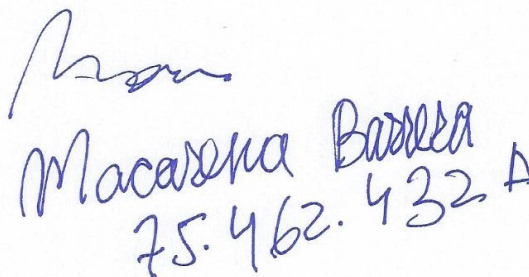 Macarena Barrera
75.462.432 A